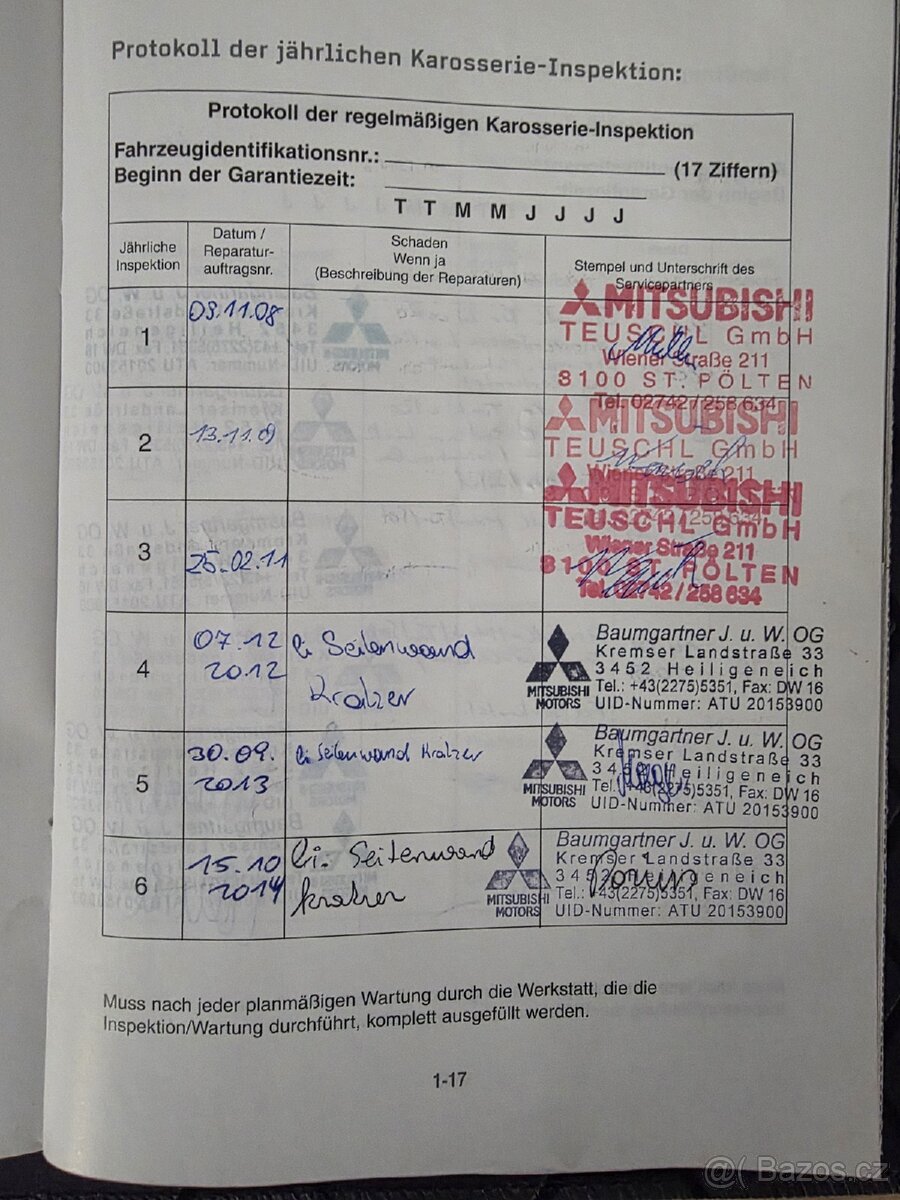 Protokoll der jährlichen Karosserie-Inspektion:
Protokoll der regelmäßigen Karosserie-Inspektion
Fahrzeugidentifikationsnr.: (17 Ziffern)
Beginn der Garantiezeit:
T T M M J J J J
Jährliche
Inspektion
Datum /
Reparatur-
auftragsnr.
Schaden
Wenn ja
(Beschreibung der Reparaturen)
Stempel und Unterschrift des
Servicepartners
1
03.11.08
MITSUBISHI
TEUSCHL GmbH
Wiener Straße 211
8100 ST. PÖLTEN
Tel. 02742/258 634
2
13.11.09
MITSUBISHI
TEUSCHL GmbH
Wiener Straße 211
3
25.02.11
MITSUBISHI
TEUSCHL GmbH
Wiener Straße 211
8100 ST. PÖLTEN
Tel. 02742/258 634
4
07.12
2012
li Seitenwand
Kratzer
MITSUBISHI
MOTORS
Baumgartner J. u. W. OG
Kremser Landstraße 33
3452 Heiligeneich
Tel.: +43(2275)5351, Fax: DW 16
UID-Nummer: ATU 20153900
5
30.09.
2013
li Seitenwand Kratzer
MITSUBISHI
MOTORS
Baumgartner J. u. W. OG
Kremser Landstraße 33
3452 Heiligeneich
Tel.: +43(2275)5351, Fax: DW 16
UID-Nummer: ATU 20153900
6
15.10
2014
li. Seitenwand
kratzer
MITSUBISHI
MOTORS
Baumgartner J. u. W. OG
Kremser Landstraße 33
3452 Heiligeneich
Tel.: +43(2275)5351, Fax: DW 16
UID-Nummer: ATU 20153900
Muss nach jeder planmäßigen Wartung durch die Werkstatt, die die
Inspektion/Wartung durchführt, komplett ausgefüllt werden.
1-17
@( Bazos.cz